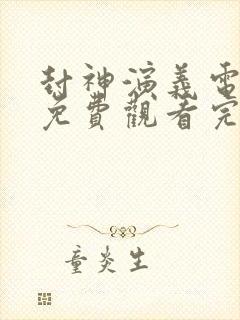 封神演義電
免費觀看完
童炎生